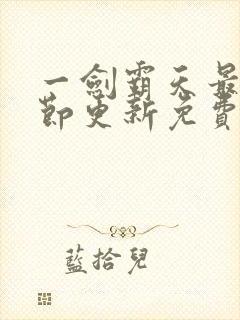 一劍霸天最
節更新免費
藍拾兒